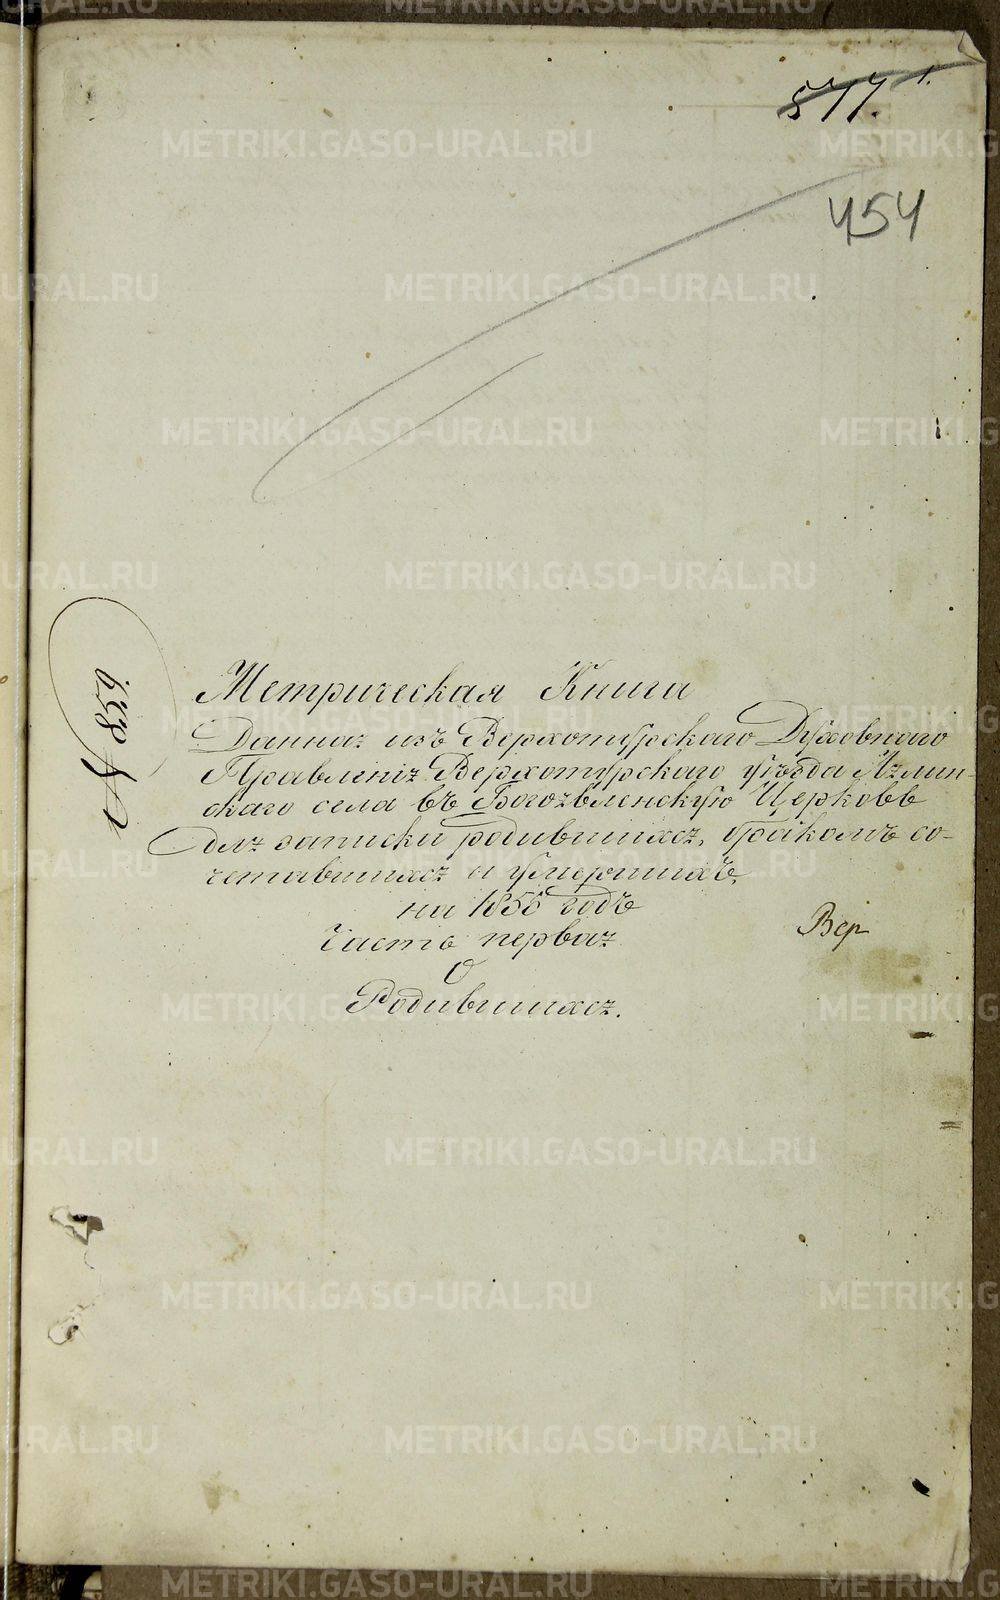 577.
1.
454
№ 859.
Метрическая Книга
Данная изъ Верхотурскаго Духовнаго
Правленія Верхотурскаго уѣзда Аялин-
скаго села въ Богоявленскую Церковь
для записки родившихся, бракомъ со-
четавшихся и умершихъ,
на 1856 годъ
Часть первая
О
Родившихся.
Вер
METRIKI.GASO-URAL.RU